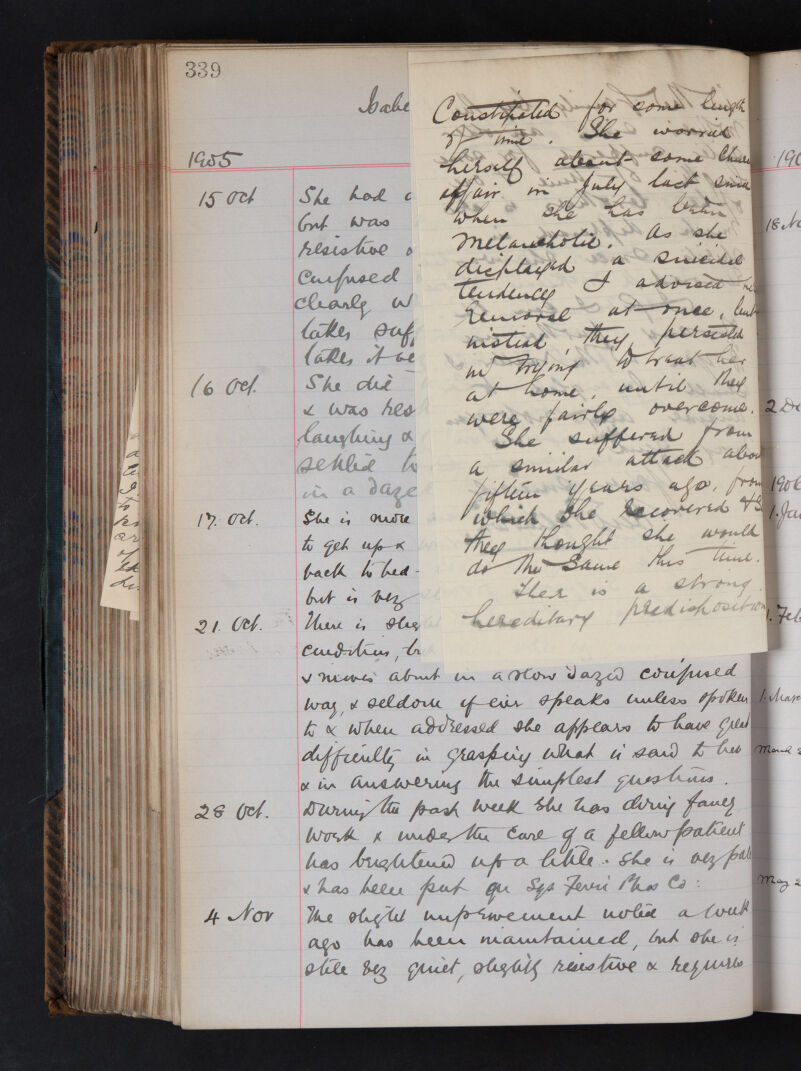 339
Isabe
1905
15 Oct She had
but was
resistive
confused
clearly
takes suf
takes it
16 Oct. She did
& was res
laughing &
settled
in a daze
17. Oct. She is more
to get up &
back to bed -
but is very
21. Oct. There is slig
condition,
& moves about in a slow dazed confused
way, & seldom if ever speaks unless spoken
to & when addressed she appears to have great
difficulty in grasping what is said to her
& in answering the simplest questions.
28 Oct. During the past week she has doing fancy
work & under the care of a fellow patient
has brightened up a little. She is very pale
& has been put on Syr Ferri Phos Co:
4 Nov The slight improvement noted a week
ago has been maintained, but she is
still very quiet, slightly resistive & requires
Constipated for some length
of time. She worried
herself about some
affair in July last since
when she has been
Melancholic. As she
displayed a suicidal
tendency I advised her
removal at once, but
instead they persisted
in trying to treat her
at home, until they
were fairly overcome.
She suffered from
a similar attack about
fifteen years ago, from
which she recovered &
they thought she would
do the same this time.
There is a strong
hereditary predisposition
190
18 No
2 De
1906
1. Jan
1. Feb
1. March
March
May 2